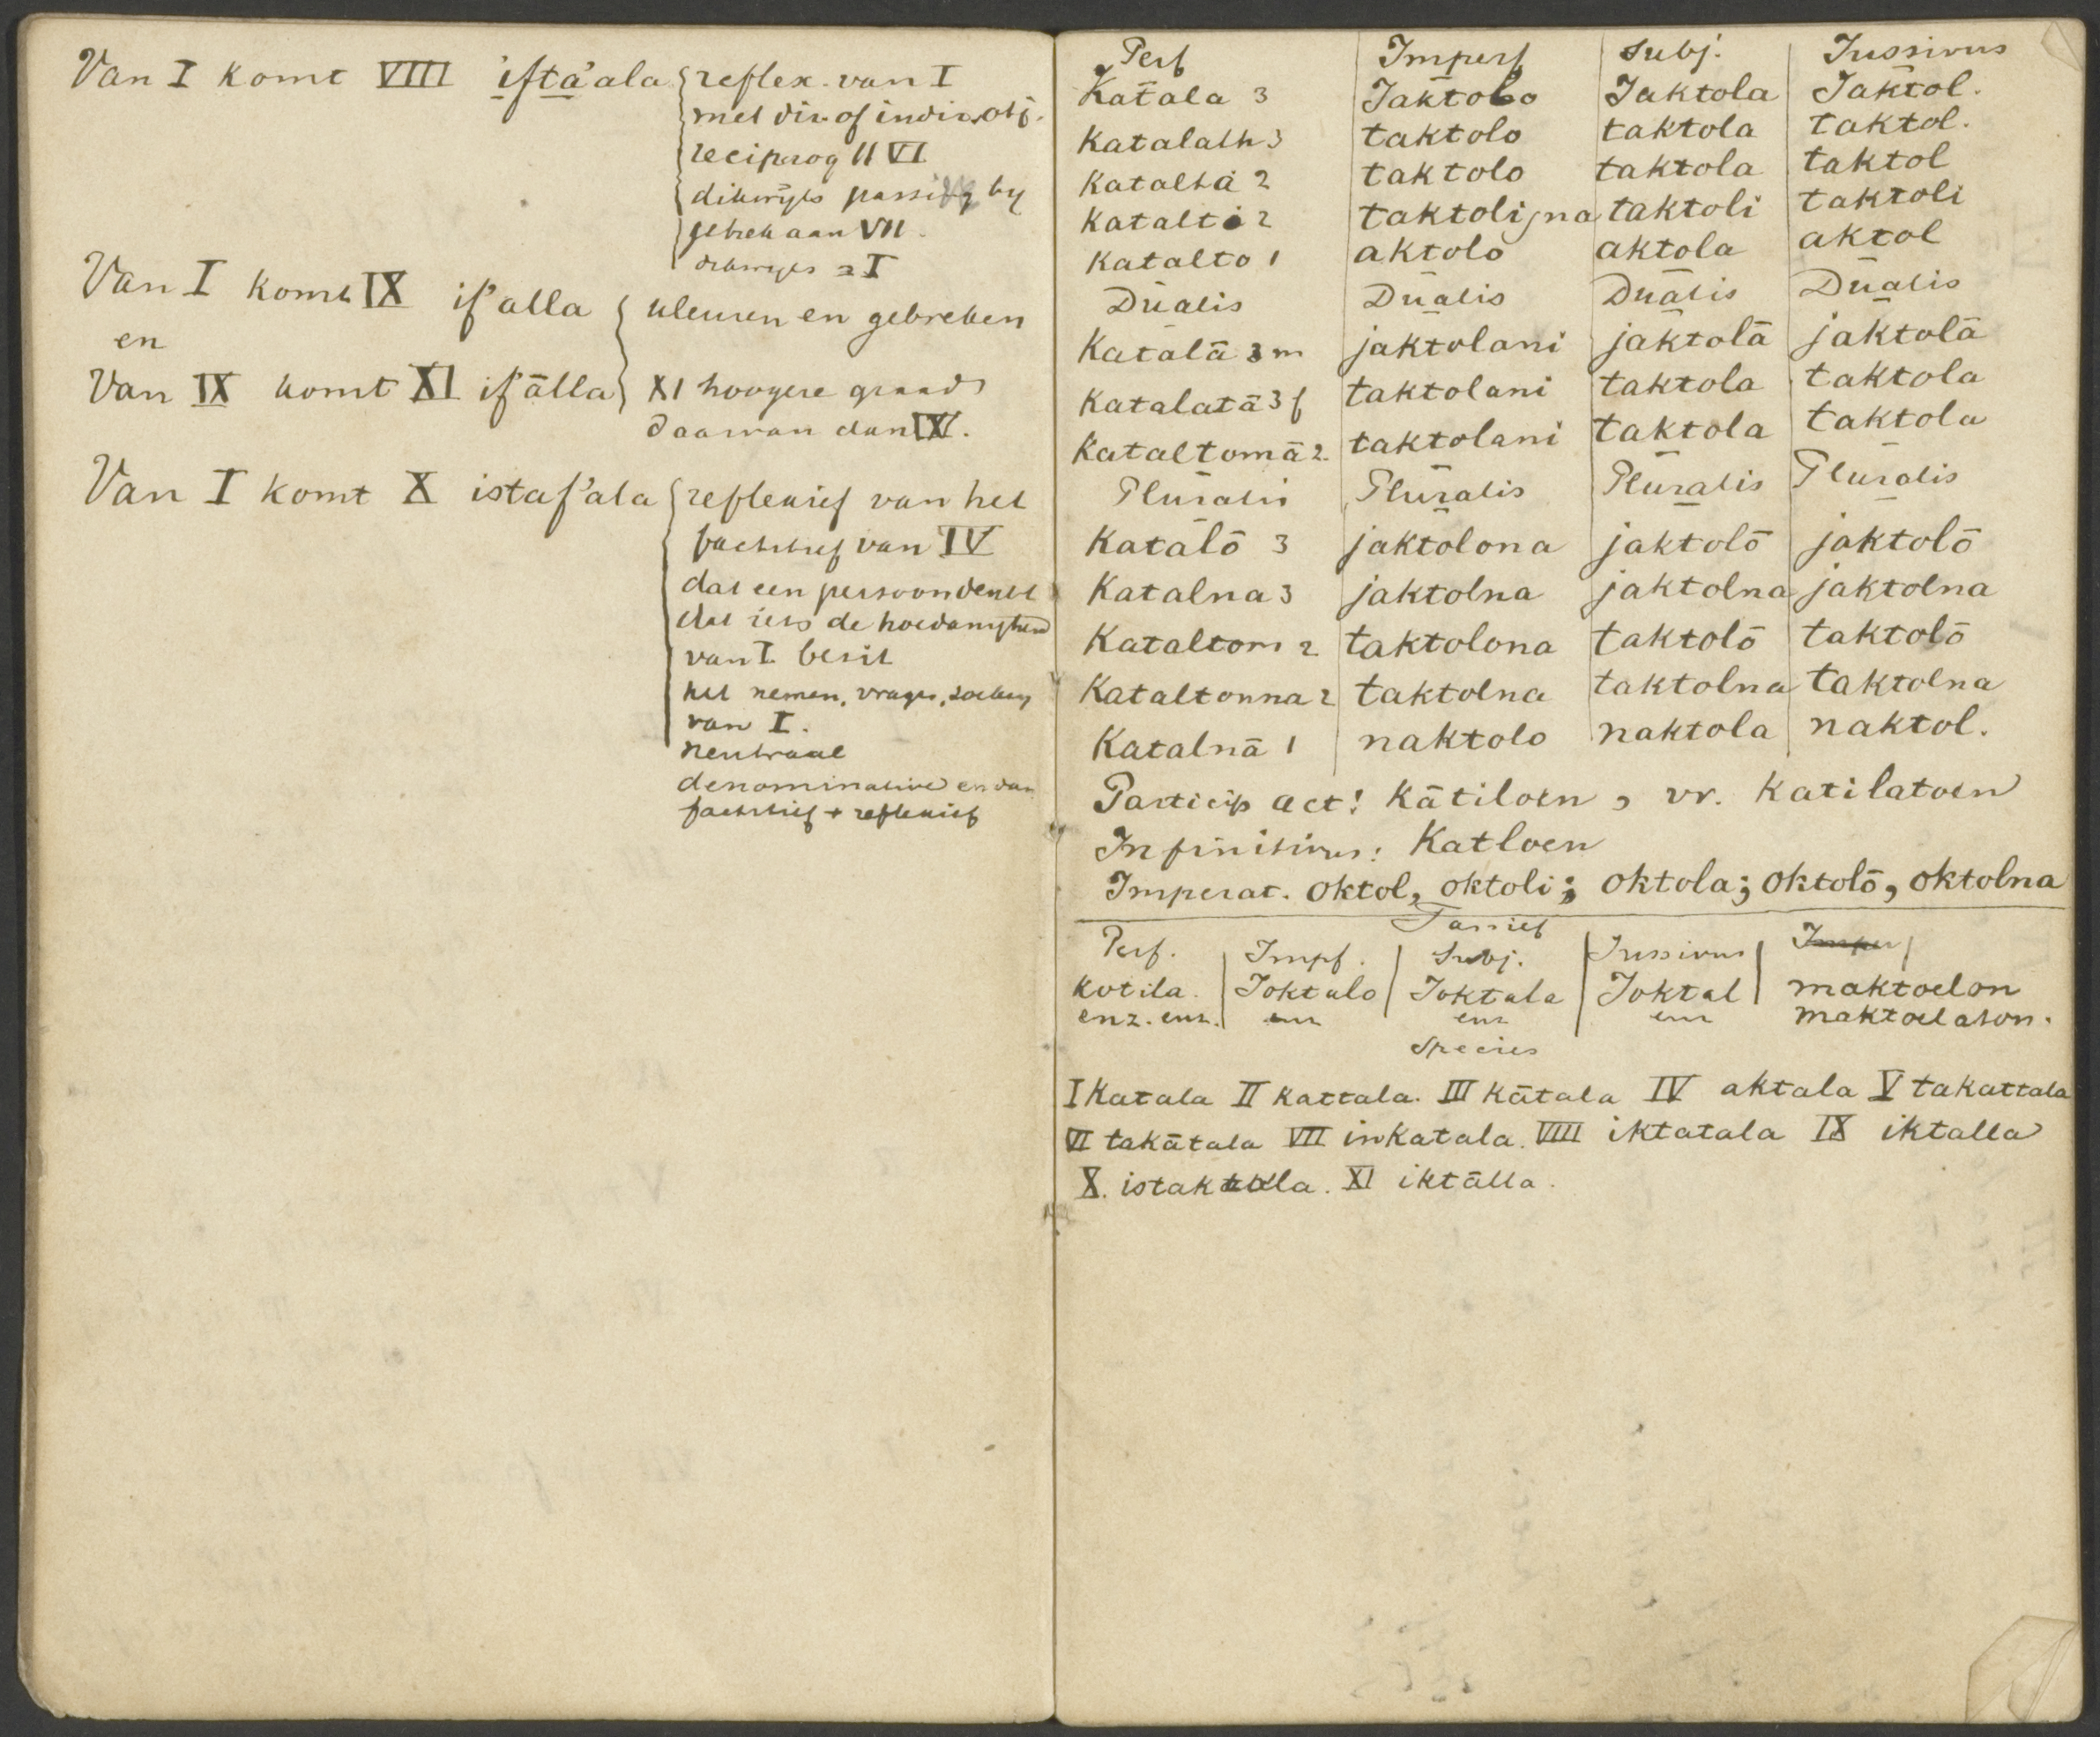 Van I komt VIII ifta'ala reflex. van I
met dir of indir obj.
reciprog II VI
dikwijls passief by
gebrek aan VII.
dikwijls = I
Van I komt IX if'alla kleuren en gebreken
en
Van IX komt XI if'älla XI hoogere graad
daarvan dan IX.
Van I komt X istaf'ala reflexief van het
factitief van IV
dat een persoon denkt
dat iets de hoedanigheid
van I bezit
het nemen, vragen, zoeken
van I.
neutraal
denominatief en dan
factitief + reflexief
Perf Imperf Subj. Jussivus
Katala 3 Jaktolo Jaktola Jaktol.
Katalath 3 taktolo taktola taktol.
Katalta 2 taktolo taktola taktol
Katalti 2 taktolijna taktoli taktoli
Katalto 1 aktolo aktola aktol
Dualis Dualis Dualis Dualis
Katalä 3 m jaktolani jaktolä jaktolä
Katalatä 3 f taktolani taktola taktola
Kataltomä 2. taktolani taktola taktola
Pluralis Pluralis Pluralis Pluralis
Katalō 3 jaktolona jaktolō jaktolō
Katalna 3 jaktolna jaktolna jaktolna
Kataltom 2 taktolona taktolō taktolō
Kataltonna 2 taktolna taktolna taktolna
Katalnä 1 naktolo naktola naktol.
Particip act! Kätiloen, vr. Katilatoen
Infinitivus: Katloen
Imperat. Oktol, oktoli; oktola; oktolō, oktolna
Passief
Perf. Impf. Subj. Jussivus Imper
Kotila. Joktalo Joktala Joktal maktoelon
enz. enz. enz enz enz maktoelaton.
Species
I Katala II Kattala. III Kātala IV aktala V takattala
VI takātala VII inkatala. VIII iktatala IX iktalla
X. istaktala. XI iktälla.